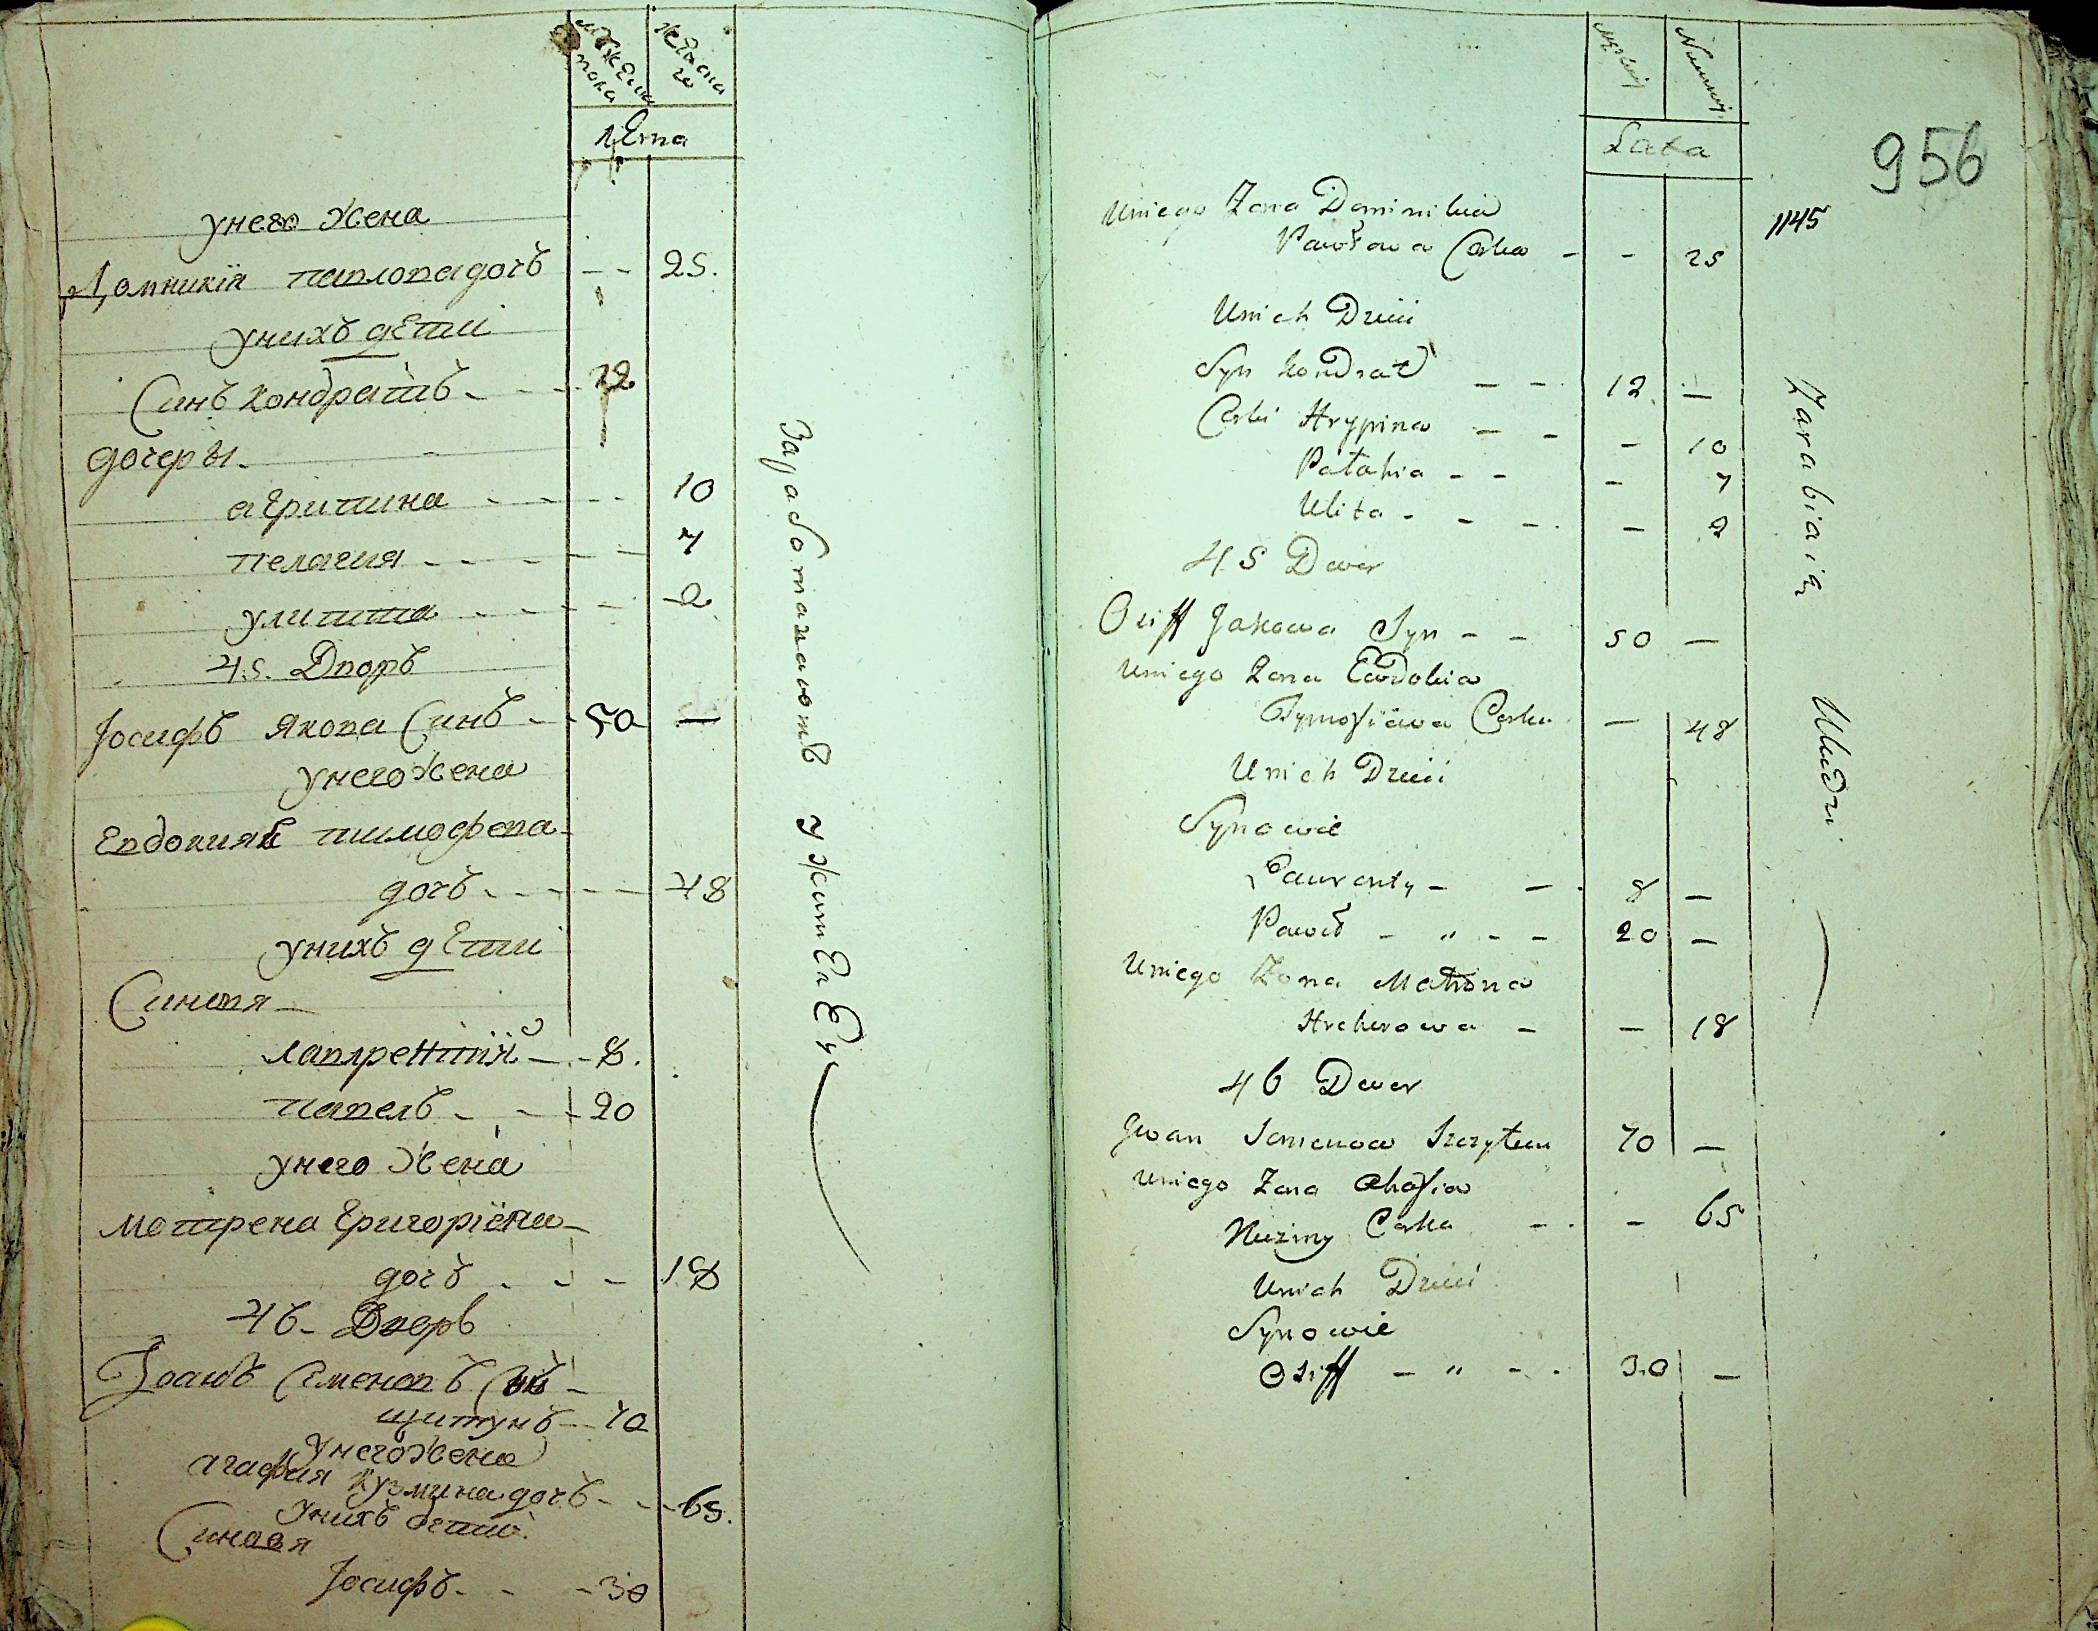 мужеска пола
женска го
лета
унего жена
Домникія павлова дочъ - - 25.
унихъ дети
Синъ кондратъ - - - 12
дочеры -
агрипина - - - - 10
пелагия - - - - - 7
улитта - - - - 2
45. Дворъ
Іосифъ якова Синъ - - 50 —
унего жена
Евдокия тимофева -
дочъ - - - - - 48
унихъ дети
Синовя -
лаврентий - - 8.
павелъ - - - 20
унего жена
мотрена григоріева -
дочъ - - - 18
46 - Дворъ
Іоанъ Семеновъ Синъ -
щитунъ - - 70
унего жена
агафия кузмина дочъ - - - 65.
унихъ дети
Синовя
Іосифъ - - - 30
Заработаваютъ
Męzkiej
Lata
956
1145
Uniego Zona Dominikia
Pawłowa Corka - - 25
Unich Dzieci
Syn Kondrat - - 12 -
Corki Hrypina - - - 10
Patahia - - - 7
Ulita - - - - 2
45 Dwor
Osiff Jakowa Syn - - 50 -
Uniego Zona Ewdokia
Tymofiiowa Corka - 48
Unich Dzieci
Synowie
Laurenty - - 8 -
Paweł - " - - 20 -
Uniego Zona Matrona
Hreherowa - - 18
46 Dwor
Jwan Semenow Szczytun 70 -
Uniego Zona Ahafia
Kuzmy Corka - - - 65
Unich Dzieci
Synowie
Osiff - " - - 30 -
Zarabiaią